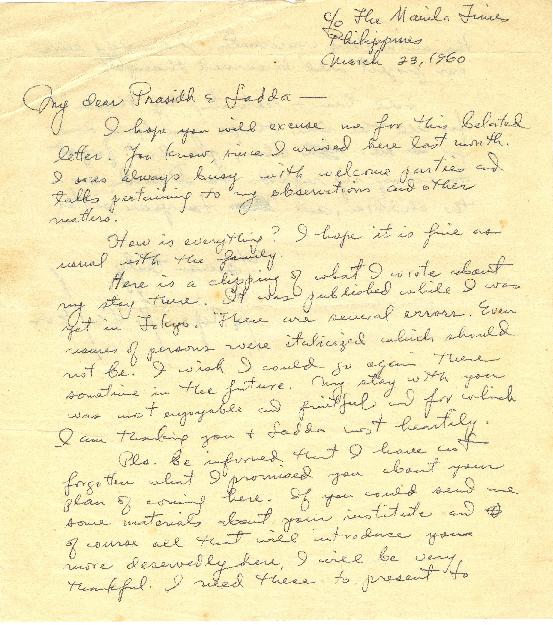 c/o The Manila Times
Philippines
March 23, 1960
My dear Prasidh & Ladda —
I hope you will excuse me for this belated
letter. You know, since I arrived here last month.
I was always busy with welcome parties and
talks pertaining to my observations and other
matters.
How is everything? I hope it is fine as
usual with the family.
Here is a clipping of what I wrote about
my stay there. It was published while I was
yet in Tokyo. There are several errors. Even
names of persons were italicized which should
not be. I wish I could go again there
sometime in the future. My stay with you
was most enjoyable and fruitful and for which
I am thanking you & Ladda most heartily.
Pls. be informed that I have not
forgotten what I promised you about your
plan of coming here. If you could send me
some materials about your institute and
of course all that will introduce you
more deservedly here, I will be very
thankful. I need these to present to